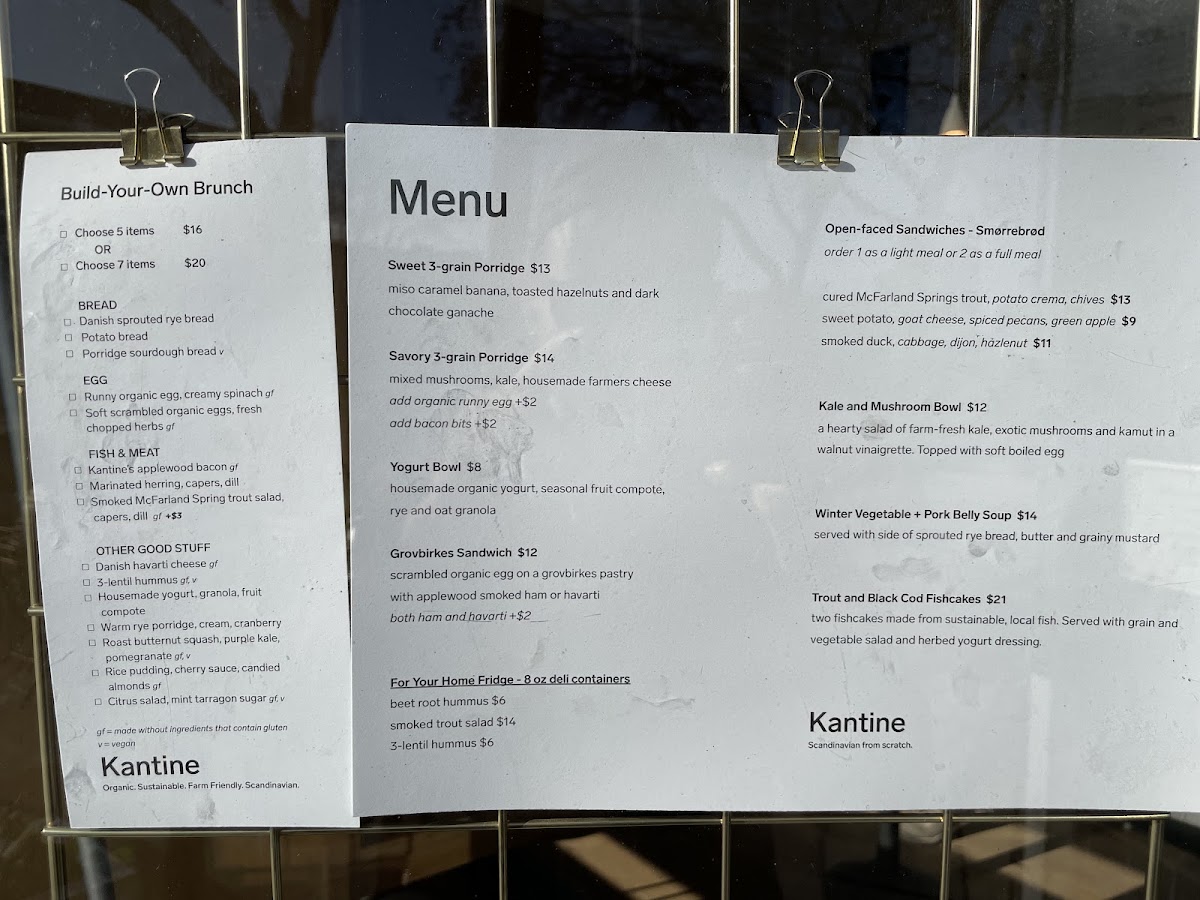 Build-Your-Own Brunch
Choose 5 items $16
OR
Choose 7 items $20
BREAD
Danish sprouted rye bread
Potato bread
Porridge sourdough bread v
EGG
Runny organic egg, creamy spinach gf
Soft scrambled organic eggs, fresh
chopped herbs gf
FISH & MEAT
Kantine's applewood bacon gf
Marinated herring, capers, dill
Smoked McFarland Spring trout salad,
capers, dill gf +$3
OTHER GOOD STUFF
Danish havarti cheese gf
3-lentil hummus gf, v
Housemade yogurt, granola, fruit
compote
Warm rye porridge, cream, cranberry
Roast butternut squash, purple kale,
pomegranate gf, v
Rice pudding, cherry sauce, candied
almonds gf
Citrus salad, mint tarragon sugar gf, v
gf = made without ingredients that contain gluten
v = vegan
Kantine
Organic. Sustainable. Farm Friendly. Scandinavian.
Menu
Sweet 3-grain Porridge $13
miso caramel banana, toasted hazelnuts and dark
chocolate ganache
Savory 3-grain Porridge $14
mixed mushrooms, kale, housemade farmers cheese
add organic runny egg +$2
add bacon bits +$2
Yogurt Bowl $8
housemade organic yogurt, seasonal fruit compote,
rye and oat granola
Grovbirkes Sandwich $12
scrambled organic egg on a grovbirkes pastry
with applewood smoked ham or havarti
both ham and havarti +$2
For Your Home Fridge - 8 oz deli containers
beet root hummus $6
smoked trout salad $14
3-lentil hummus $6
Open-faced Sandwiches - Smørrebrød
order 1 as a light meal or 2 as a full meal
cured McFarland Springs trout, potato crema, chives $13
sweet potato, goat cheese, spiced pecans, green apple $9
smoked duck, cabbage, dijon, hazlenut $11
Kale and Mushroom Bowl $12
a hearty salad of farm-fresh kale, exotic mushrooms and kamut in a
walnut vinaigrette. Topped with soft boiled egg
Winter Vegetable + Pork Belly Soup $14
served with side of sprouted rye bread, butter and grainy mustard
Trout and Black Cod Fishcakes $21
two fishcakes made from sustainable, local fish. Served with grain and
vegetable salad and herbed yogurt dressing.
Kantine
Scandinavian from scratch.